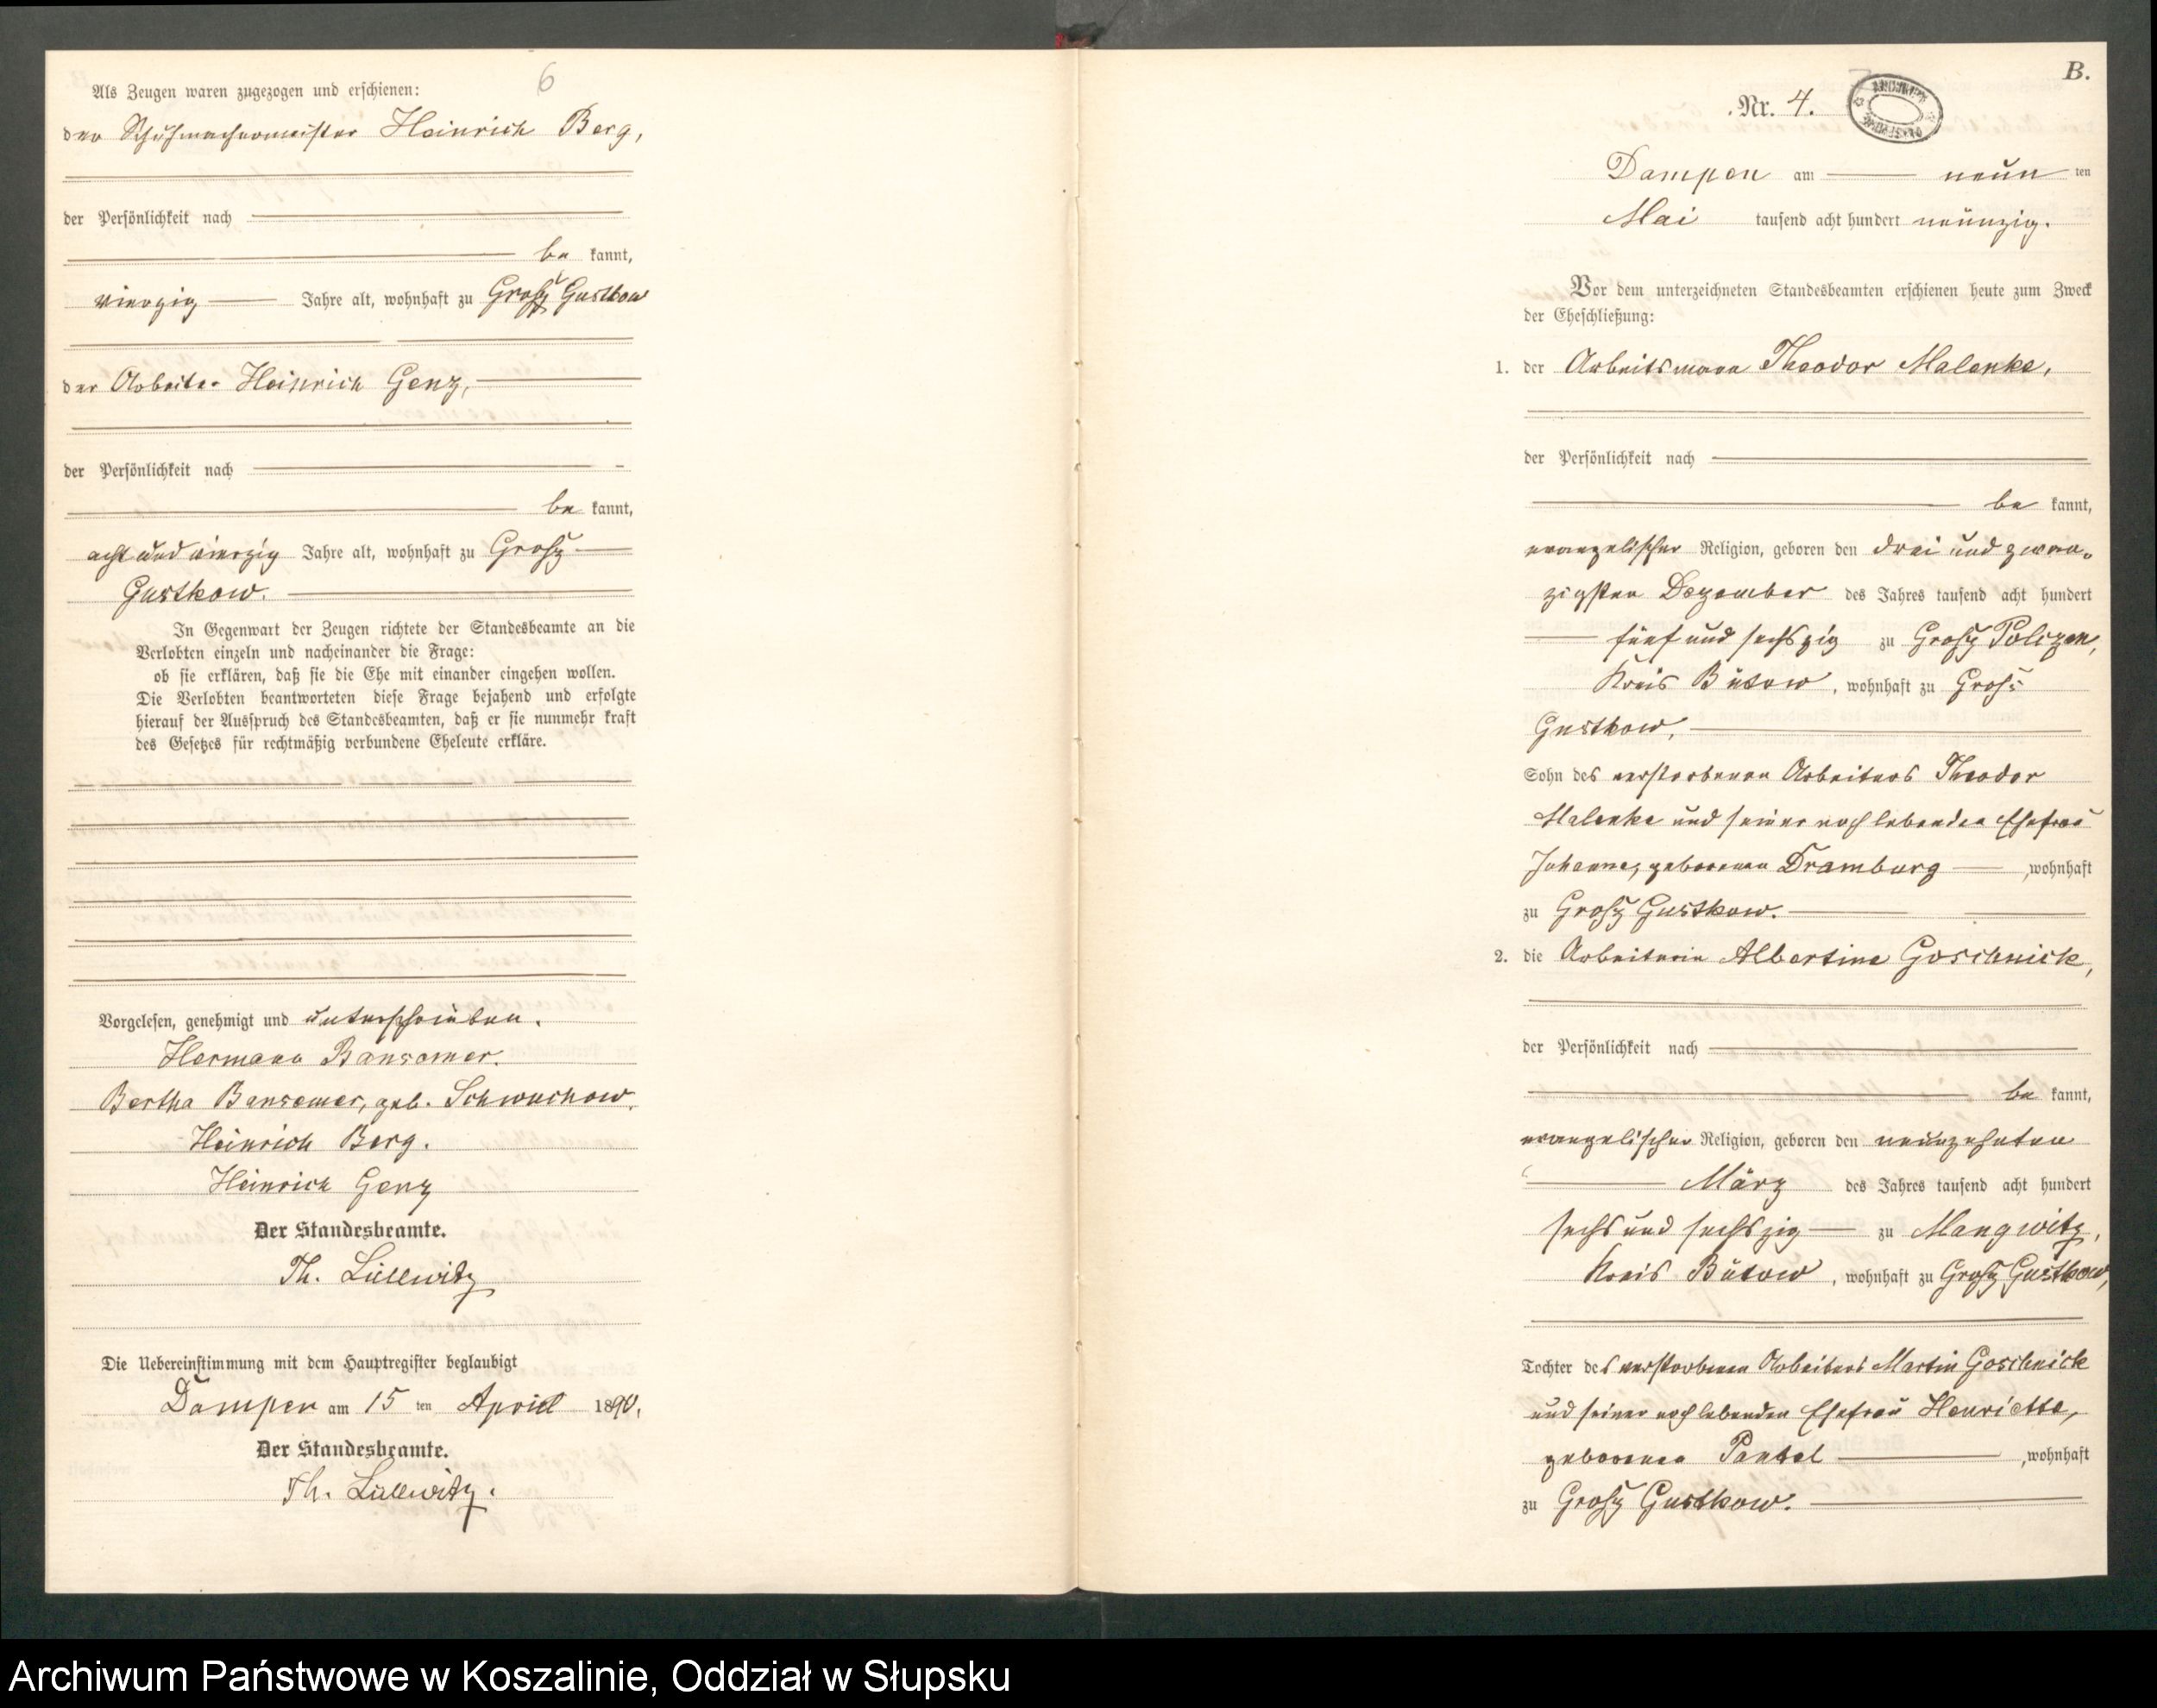 6
Als Zeugen waren zugezogen und erschienen:
der Schuhmachermeister Heinrich Berg,
der Persönlichkeit nach
be kannt,
vierzig Jahre alt, wohnhaft zu Groß Gustkow
der Arbeiter Heinrich Genz,
der Persönlichkeit nach
be kannt,
acht und vierzig Jahre alt, wohnhaft zu Groß
Gustkow.
In Gegenwart der Zeugen richtete der Standesbeamte an die
Verlobten einzeln und nacheinander die Frage:
ob sie erklären, daß sie die Ehe mit einander eingehen wollen.
Die Verlobten beantworteten diese Frage bejahend und erfolgte
hierauf der Ausspruch des Standesbeamten, daß er sie nunmehr kraft
des Gesetzes für rechtmäßig verbundene Eheleute erkläre.
Vorgelesen, genehmigt und unterschrieben.
Hermann Bansemer.
Bertha Bansemer, geb. Schwuchow.
Heinrich Berg.
Heinrich Genz
Der Standesbeamte.
Th. Lüllwitz
Die Uebereinstimmung mit dem Hauptregister beglaubigt
Dampen am 15 ten April 1890.
Der Standesbeamte.
Th. Lüllwitz.
B.
Nr. 4.
Dampen am neun ten
Mai tausend acht hundert neunzig.
Vor dem unterzeichneten Standesbeamten erschienen heute zum Zweck
der Eheschließung:
1. der Arbeitsmann Theodor Malenke,
der Persönlichkeit nach
be kannt,
evangelischer Religion, geboren den drei und zwan-
zigsten Dezember des Jahres tausend acht hundert
fünf und sechszig zu Groß Polczen,
Kreis Bütow, wohnhaft zu Groß
Gustkow,
Sohn des verstorbenen Arbeiters Theodor
Malenke und seiner noch lebenden Ehefrau
Johanne, geborenen Dramburg, wohnhaft
zu Groß Gustkow.
2. die Arbeiterin Albertine Goschnick,
der Persönlichkeit nach
be kannt,
evangelischer Religion, geboren den neunzehnten
März des Jahres tausend acht hundert
sechs und sechszig zu Mangwitz,
Kreis Bütow, wohnhaft zu Groß Gustkow,
Tochter des verstorbenen Arbeiters Martin Goschnick
und seiner noch lebenden Ehefrau Henriette,
geborenen Pantel, wohnhaft
zu Groß Gustkow.
Archiwum Państwowe w Koszalinie, Oddział w Słupsku